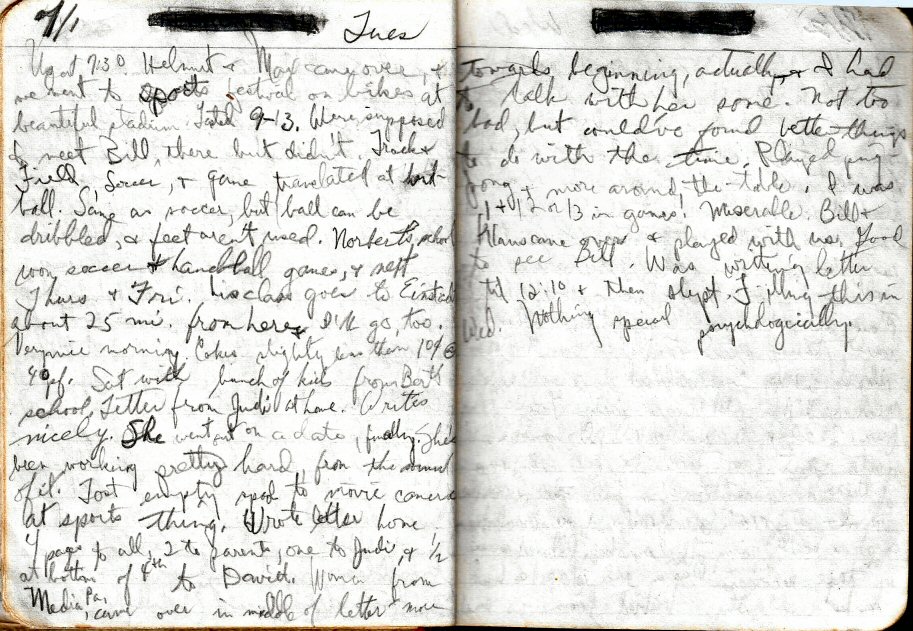 7/1
Tues
Up at 7:30. Helmut & Max came over, &
we went to sports festival on bikes at
beautiful stadium. Lasted 9-13. Were supposed
to meet Bill, there but didn't. Track &
Field, Soccer, & game translated at hand
ball. Same as soccer, but ball can be
dribbled, & feet aren't used. Norbert's school
won soccer & handball games, & next
Thurs & Fri. his class goes to
about 25 mi. from here, & I'll go, too.
Very nice morning. Cokes slightly less than 10¢ @
40 pf. Sat with bunch of kids from Bert's
school. Letter from Judi at home. Writes
nicely. She went out on a date, finally. She's
been working pretty hard, from the sound
of it. Lost empty spool to movie camera
at sports thing. Wrote letter home.
4 pages to all, 2 to parents, one to Judi, & 1/2
at bottom of 4th to David. Woman from
Media, Pa., came over in middle of letter more
towards beginning, actually, & I had
to talk with her some. Not too
bad, but could've found better things
to do with the time. Played ping-
pong & more around-the-table. I was
1 & 12 or 13 in games! Miserable. Bill &
Klaus came over & played with us. Good
to see Bill. Was writing letter
'til 12:10 & then slept. I this in
Wed. Nothing special psychologically.